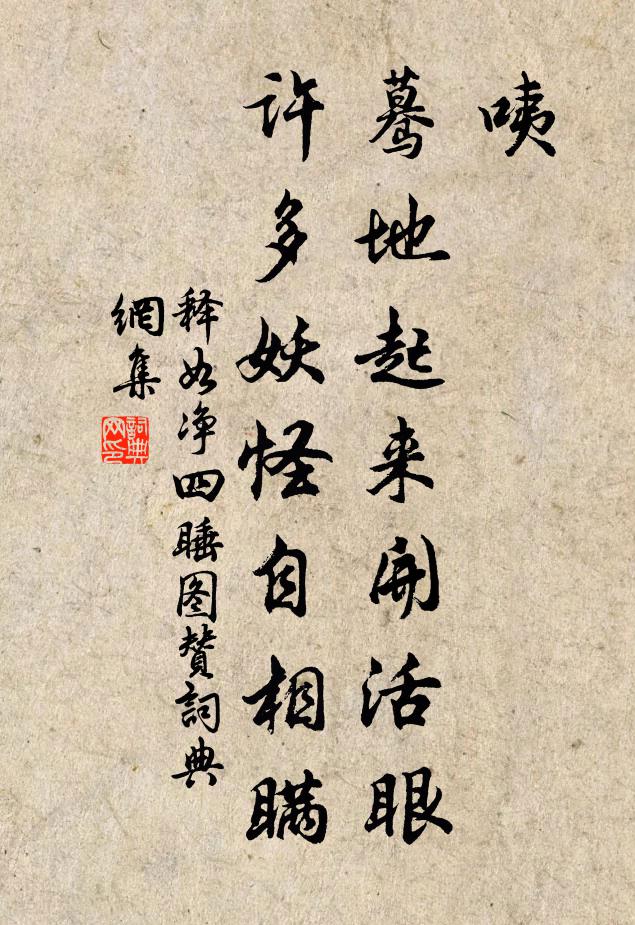 咦
蓦地起来开活眼
许多妖怪自相瞒
释如净四睡图赞詞典
網集
詞典网印